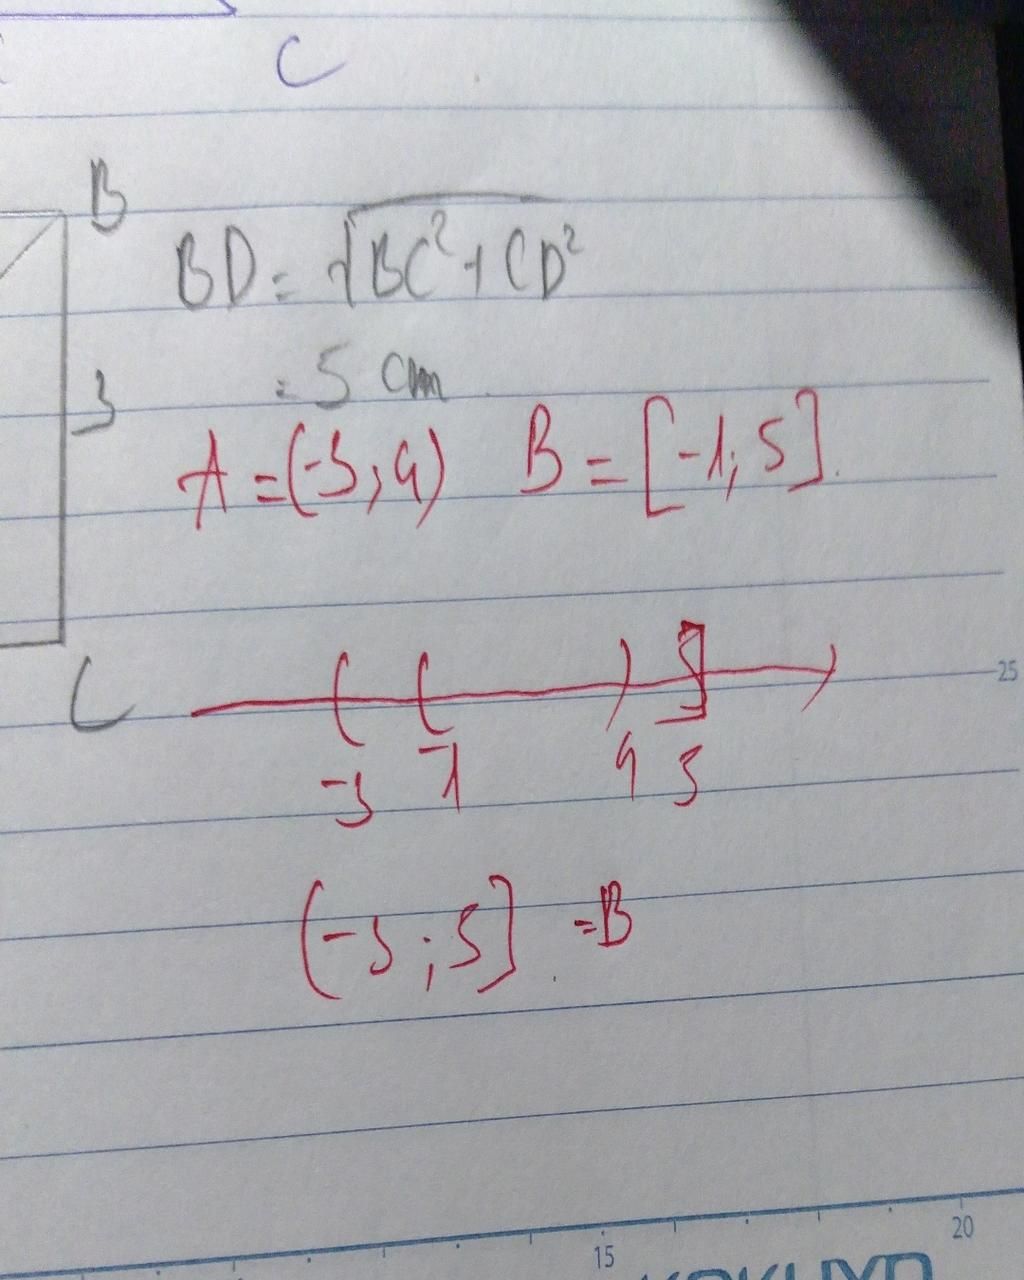 C
B
BD = √BC² + CD²
3
= 5 cm
A = (-3; 4) B = [-1; 5]
C
25
-3 -1 4 5
(-3; 5] = B
15 20
KOKUYO